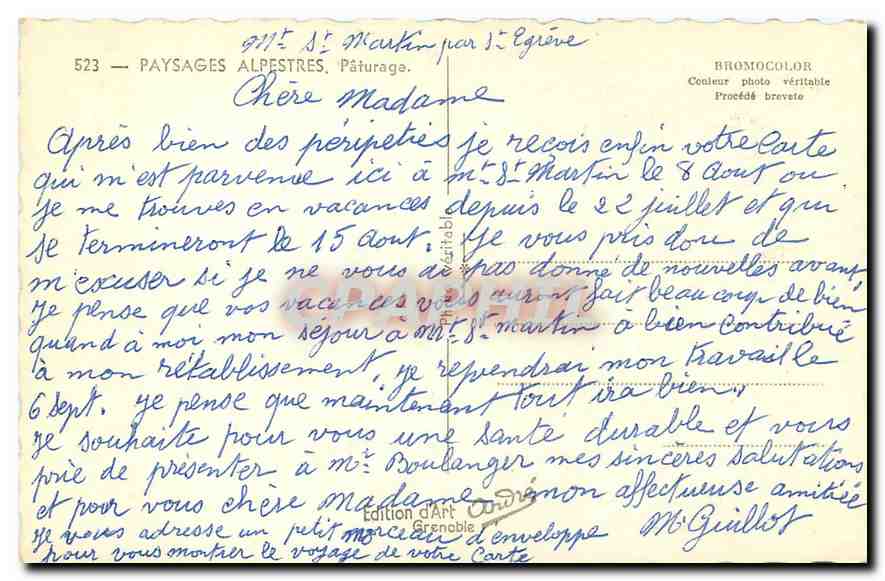 Mt St Martin par St Egrève
523 — PAYSAGES ALPESTRES. Pâturage.
BROMOCOLOR
Couleur photo véritable
Procédé breveté
Chère Madame
Après bien des péripeties je reçois enfin votre Carte
qui m'est parvenue ici à Mt St Martin le 8 Aout ou
je me trouves en vacances depuis le 22 juillet et qui
se termineront le 15 Aout. Je vous pris donc de
m'excuser si je ne vous ai pas donné de nouvelles avant
Je pense que vos vacances vous auront fait beaucoup de bien
quand à moi mon séjour à Mt St Martin à bien contribué
à mon rétablissement, je reprendrai mon travail le
6 Sept. je pense que maintenant tout ira bien.
Je souhaite pour vous une santé durable et vous
prie de présenter à Mr Boulanger mes sincères salutations
et pour vous chère Madame mon affectueuse amitiée
Edition d'Art André
Grenoble
Je vous adresse un petit morceau d'enveloppe
pour vous montrer le voyage de votre Carte
M Guillot